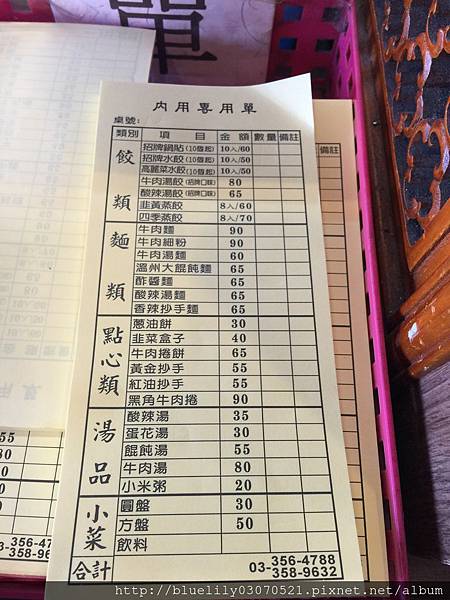 單
內用專用單
桌號:
類別 項目 金額 數量 備註
餃類
招牌鍋貼(10個起) 10入/60
招牌水餃(10個起) 10入/50
高麗菜水餃(10個起) 10入/50
牛肉湯餃(招牌口味) 80
酸辣湯餃(招牌口味) 65
韭黃蒸餃 8入/60
四季蒸餃 8入/70
麵類
牛肉麵 90
牛肉細粉 90
牛肉湯麵 60
溫州大餛飩麵 65
酢醬麵 65
酸辣湯麵 65
香辣抄手麵 65
點心類
蔥油餅 30
韭菜盒子 40
牛肉捲餅 65
黃金抄手 55
紅油抄手 55
黑角牛肉捲 90
湯品
酸辣湯 35
蛋花湯 30
餛飩湯 55
牛肉湯 80
小米粥 20
小菜
圓盤 30
方盤 50
飲料
合計
03-356-4788
03-358-9632
備註
55
80
20
30
50
03-356-4
03-358-9
http://bluelily03070521.pixnet.net/album